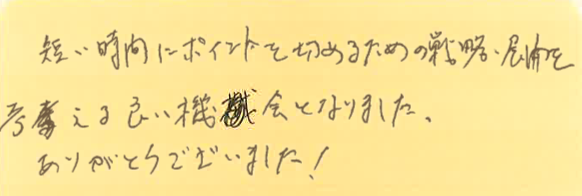 短い時間にポイントを切めるための戦略・展開を
考える良い機会となりました。
ありがとうございました!